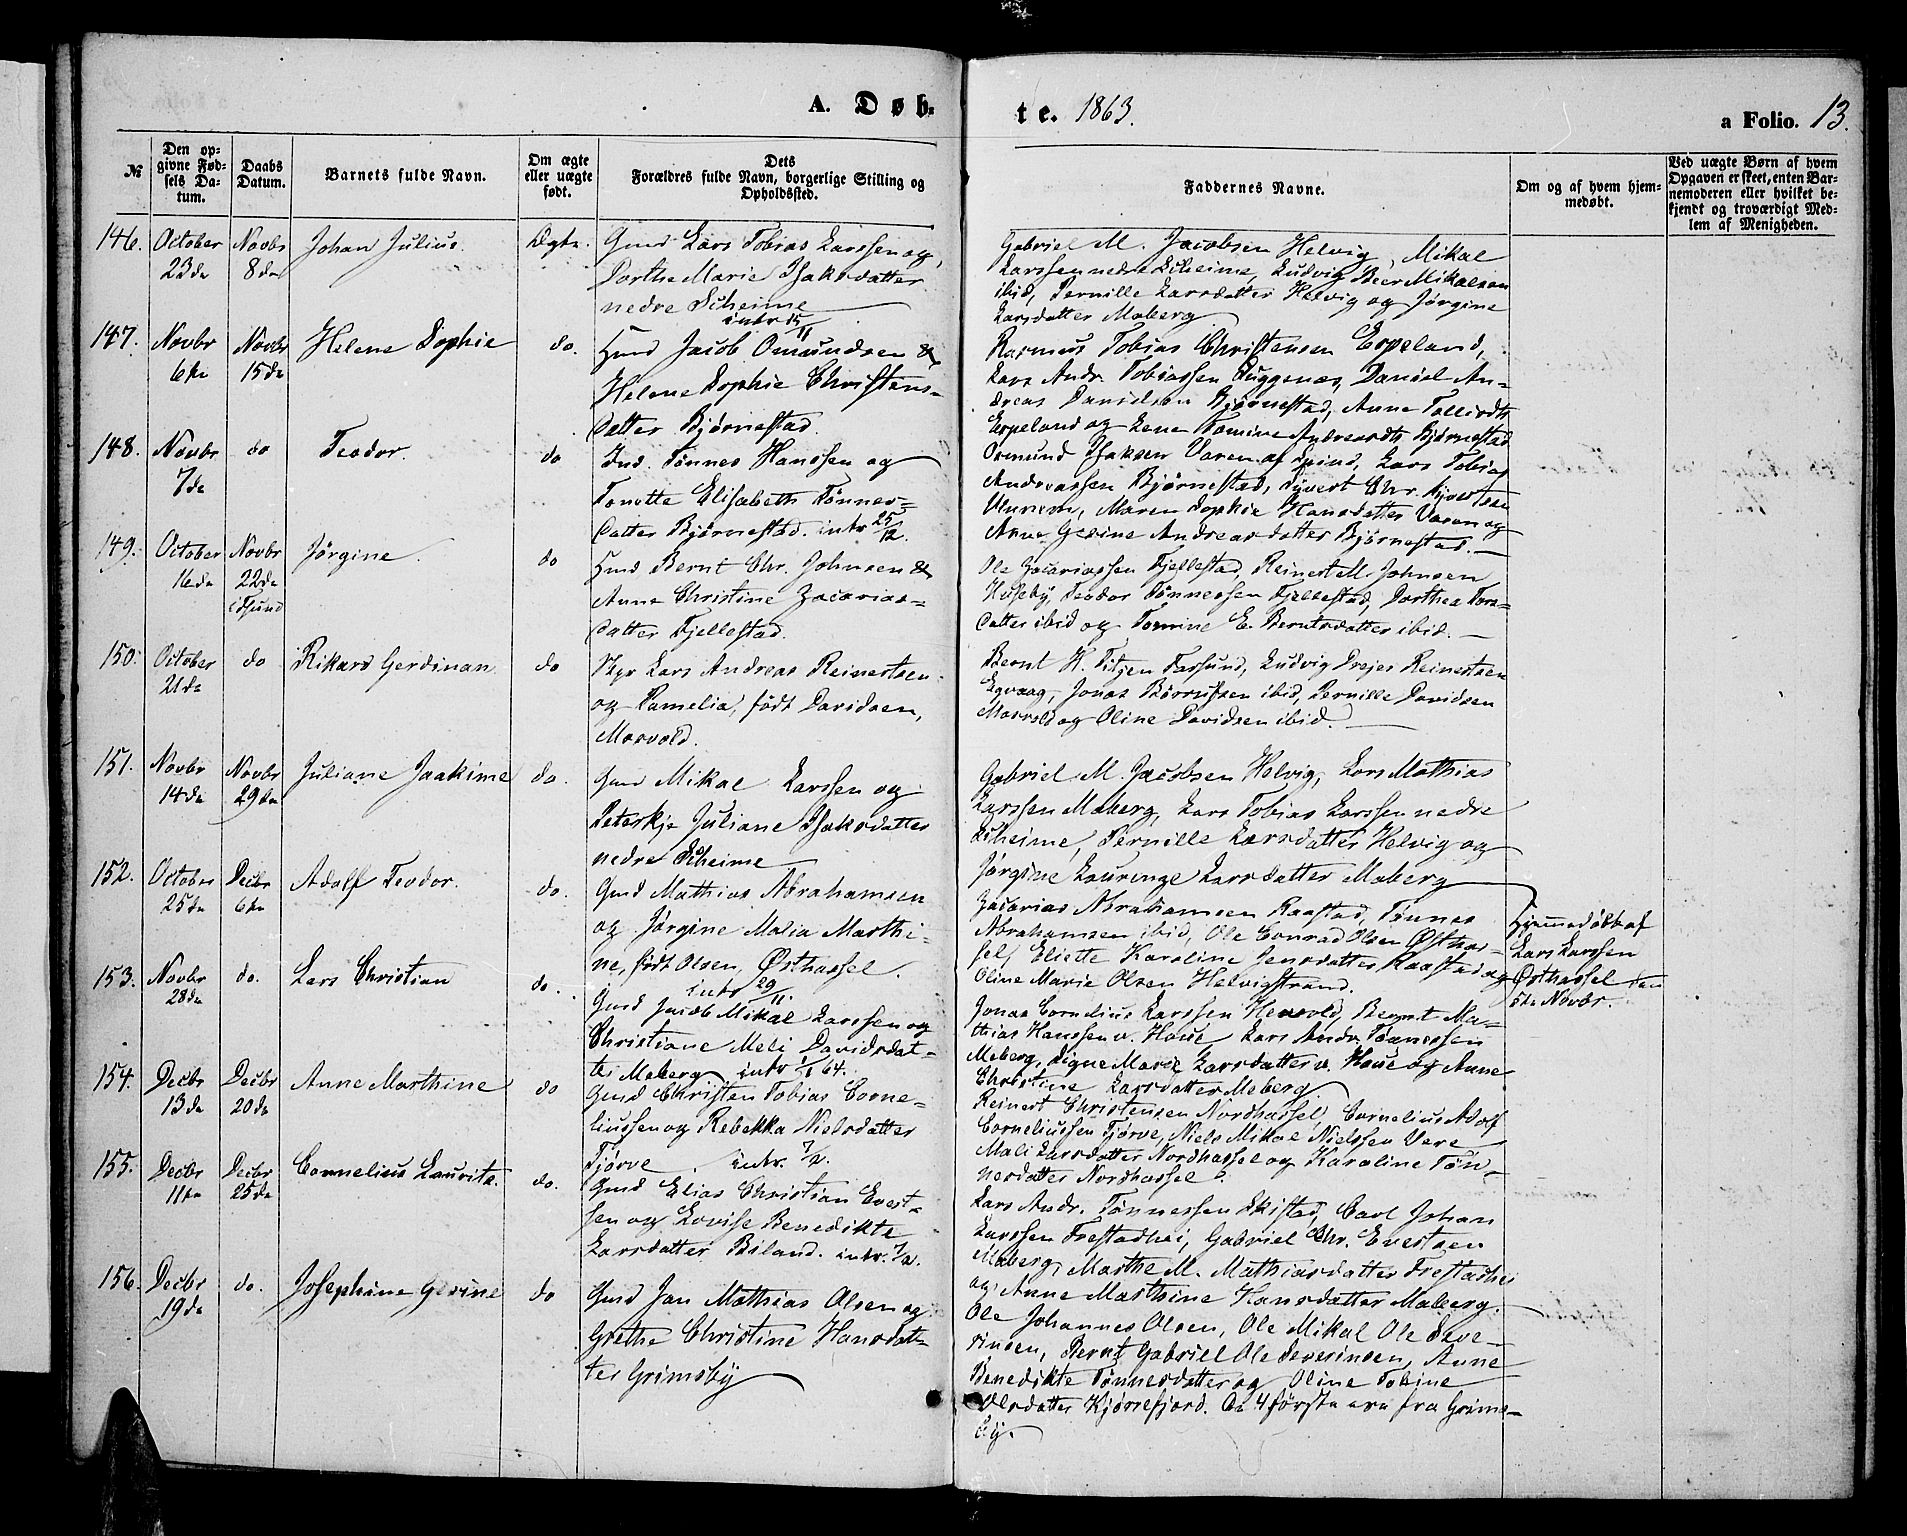 A. Døb-
te. 1863.
a Folio. 13.
№
Den op-
givne Fød-
sels Da-
tum.
Daabs
Datum.
Barnets fulde Navn.
Om ægte
eller uægte
født.
Dets
Forældres fulde Navn, borgerlige Stilling og
Opholdssted.
Faddernes Navne.
Om og af hvem hjem-
medøbt.
Ved uægte Børn af hvem
Opgaven er skeet, enten Bar-
nemoderen eller hvilket be-
kjendt og troværdigt Med-
lem af Menigheden.
146.
October
23de
Novbr
8de
Johan Julius.
Ægte.
Gmd Lars Tobias Larssen og
Dorthe Marie Isaksdatter
nedre Scheime
Gabriel M. Jacobsen Helvig, Mikal
Larssen nedre Scheime, Ludvig Beer Mikalsen
ibid, Pernille Larsdatter Helvig og Jørgine
Larsdatter Maberg
147.
Novbr
6te
Novbr
15de
Helene Sophie
do.
intr 15/11
Hmd Jacob Omundsen &
Helene Sophie Christens-
datter Bjørnestad.
Rasmus Tobias Christensen Erpeland,
Lars Andr. Tobiassen Suggenæs, Daniel An-
dreas Danielsen Bjørnestad, Anne Tallirdtr
Erpeland og Lene Tomine Andreasdtr Bjørnestad
148.
Novbr
7de
do
Teodor.
do
Ind. Tønnes Hanssen og
Tonette Elisabeth Tønnes-
datter Bjørnestad. intr 25/12.
Osmund Isaksen Varen af Spind, Lars Tobias
Andreassen Bjørnestad, Syvert Chr. Syvertsen
Ulunem, Maren Sophie Hansdatter Varen og
Anne Gesine Andreasdatter Bjørnestad.
149.
October
16de
Novbr
22de
i Fsund
Jørgine.
do
Hmd Bernt Chr. Johnsen &
Anne Christine Zacarias-
datter Fjellestad.
Ole Zacariassen Fjellestad, Reinert M. Johnsen
Huseby, Teodor Tønnessen Fjellestad, Dorthea Tors-
datter ibid og Tomine E. Berntsdatter ibid.
150.
October
21de
do
Rikard Gerdinan
do
Styr Lars Andreas Reinertsen
og Pamelia, født Davidsen,
Mosvold.
Bernt H. Titjen Farsund, Ludvig Drejer Reinertsen
Egvaag, Jonas Børrufsen ibid, Pernille Davidsen
Mosvold og Oline Davidsen ibid.
151.
Novbr
14de
Novbr
29de
Juliane Joakime
do.
Gmd Mikal Larssen og
Peterkje Juliane Isaksdatter
nedre Scheime
Gabriel M. Jacobsen Helvig, Lars Mathias
Larssen Maberg, Lars Tobias Larssen nedre
Scheime, Pernille Larsdatter Helvig og
Jørgine Lauringe Larsdatter Maberg
152.
October
25de
Decbr
6te
Adolf Teodor.
do.
Gmd Mathias Abrahamsen
og Jørgine Malia Marthi-
ne, født Olsen, Østhassel.
intr 29/11.
Zacarias Abrahamsen Raastad, Tønnes
Abrahamsen ibid, Ole Conrad Olsen Østhas-
sel, Eliette Karoline Jensdatter Raastad og
Oline Marie Olsen Helvigstrand.
Hjemmedøbt af
Lars Larssen
Østhassel den
5te Novbr.
153.
Novbr
28de
do.
Lars Christian
do.
Gmd Jacob Mikal Larssen og
Christiane Meli Davidsdat-
ter Maberg intr 1/1 64.
Jonas Cornelius Larssen Hervold, Bernt Ma-
thias Hanssen v. Houe, Lars Andr. Tønnessen
Maberg, Signe Marie Larsdatter v. Houe og Anne
Christine Larsdatter Maberg.
154.
Decbr
13de
Decbr
20de
Anne Marthine
do
Gmd Christen Tobias Corne-
liussen og Rebekka Nielsdatter
Tjørve. intr. 7/2.
Reinert Christensen Nordhassel, Cornelius Adolf
Corneliussen Tjørve, Niels Mikal Nielssen Vere
Mali Larsdatter Nordhassel og Karoline Tøn-
nesdatter Nordhassel.
155.
Decbr
11te
Decbr
25de
Cornelius Lauritz.
do.
Gmd Elias Christian Evert-
sen og Lovise Benedikte
Larsdatter Biland. intr. 7/2.
Lars Andr. Tønnessen Skistad, Carl Johan
Larssen Frestadhei, Gabriel Chr. Evertsen
Maberg, Marthe M. Mathiasdatter Frestadhei
og Anne Marthine Hansdatter Maberg.
156.
Decbr
19de
do.
Josephine Gesine
do
Gmd Jan Mathias Olsen og
Grethe Christine Hansdat-
ter Grimsby
Ole Johannes Olsen, Ole Mikal Ole Seve-
rinsen, Bernt Gabriel Ole Severinsen, Anne
Benedikte Tønnesdatter og Oline Tobine
Olsdatter Kjørrefjord. De 4 første ere fra Grims-
by.